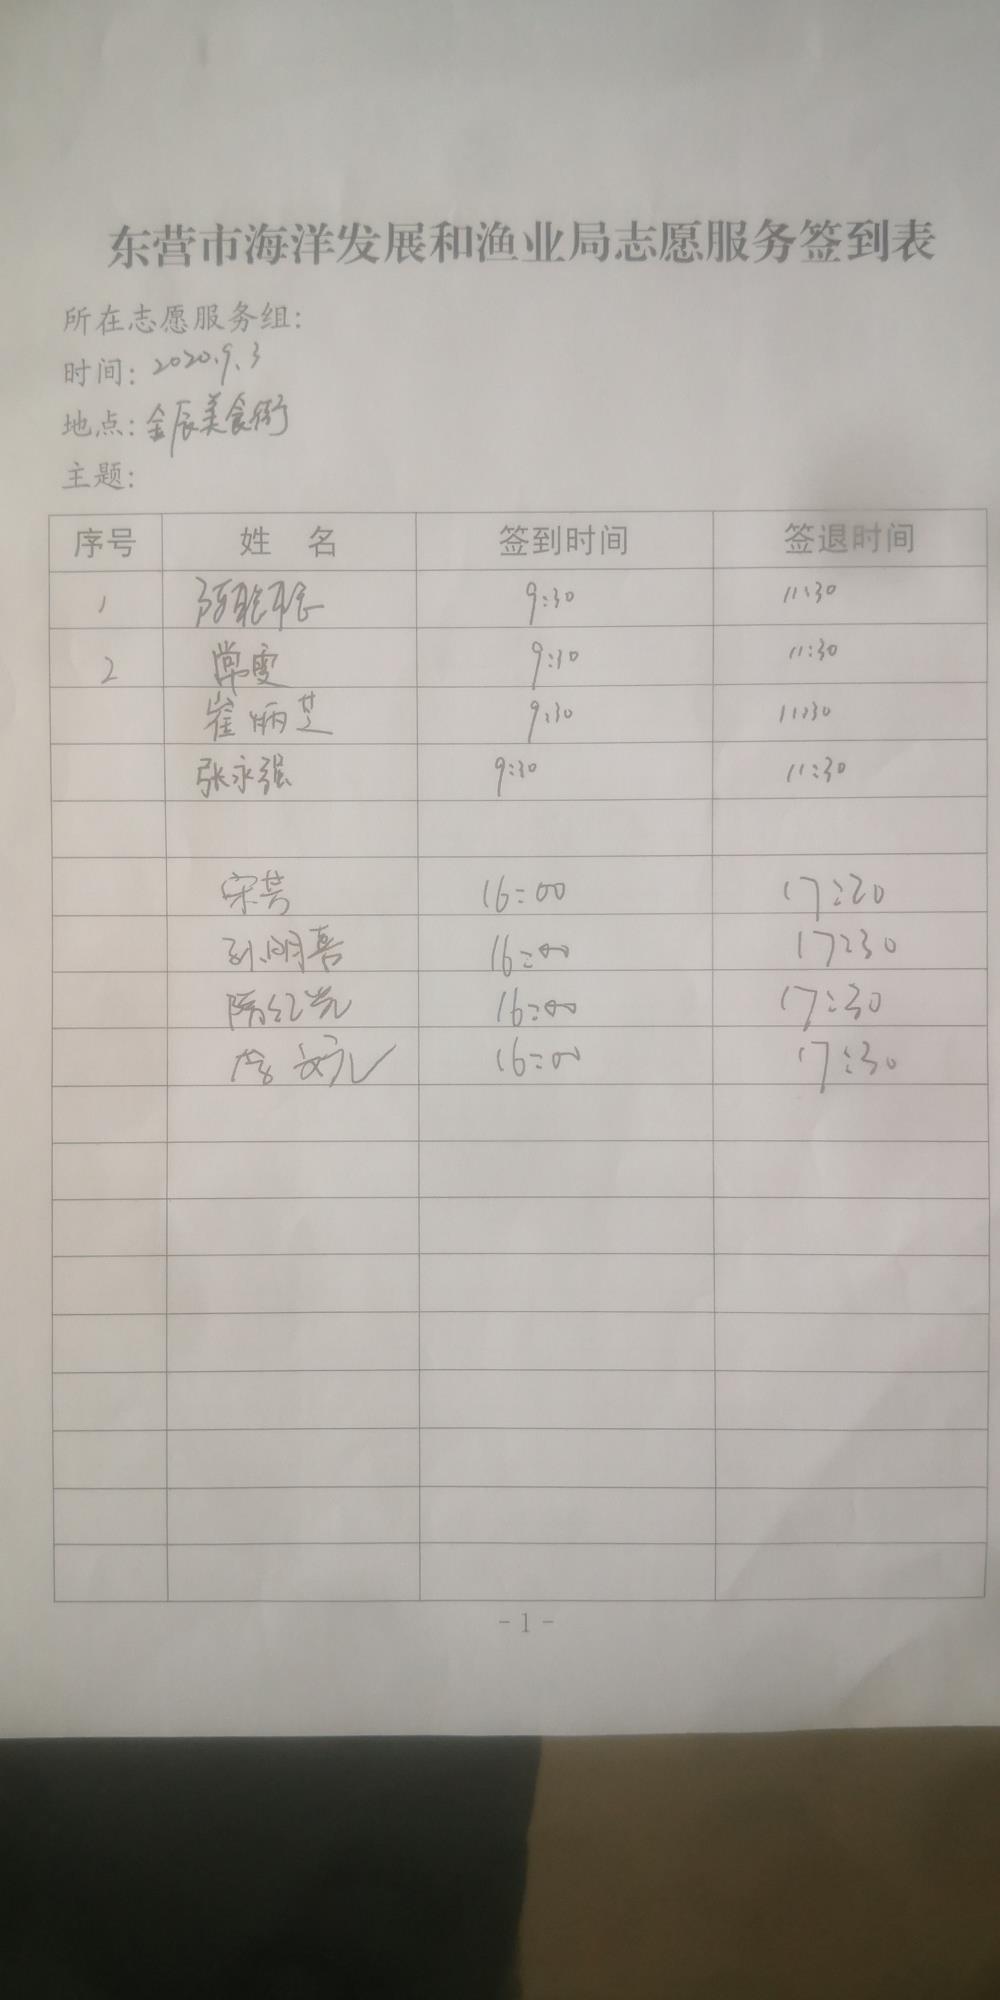 东营市海洋发展和渔业局志愿服务签到表
所在志愿服务组:
时间: 2020.9.3
地点: 金辰美食街
主题:
序号 姓 名 签到时间 签退时间
1 9:30 11:30
2 常雯 9:30 11:30
崔炳芝 9:30 11:30
张永强 9:30 11:30
宋芳 16:00 17:20
孙明喜 16:00 17:30
隋红光 16:00 17:30
16:00 17:30
- 1 -